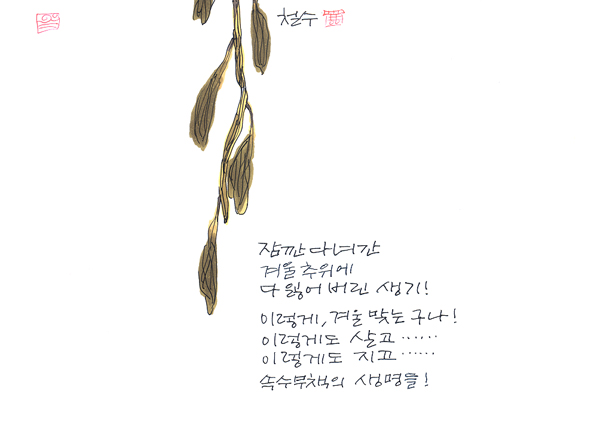 철수
잠깐 다녀간
겨울 추위에
다 잃어 버린 생기!
이렇게, 겨울 맞는구나!
이렇게도 살고 ······
이렇게도 지고 ······
속수무책의 생명들!